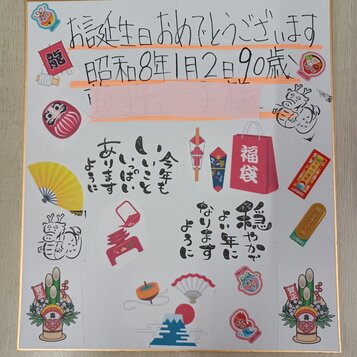 お誕生日おめでとうございます
昭和8年1月2日90歳
今年も
いいこと
いっぱい
あります
ように
福袋
穏やかで
よい年に
なります
ように